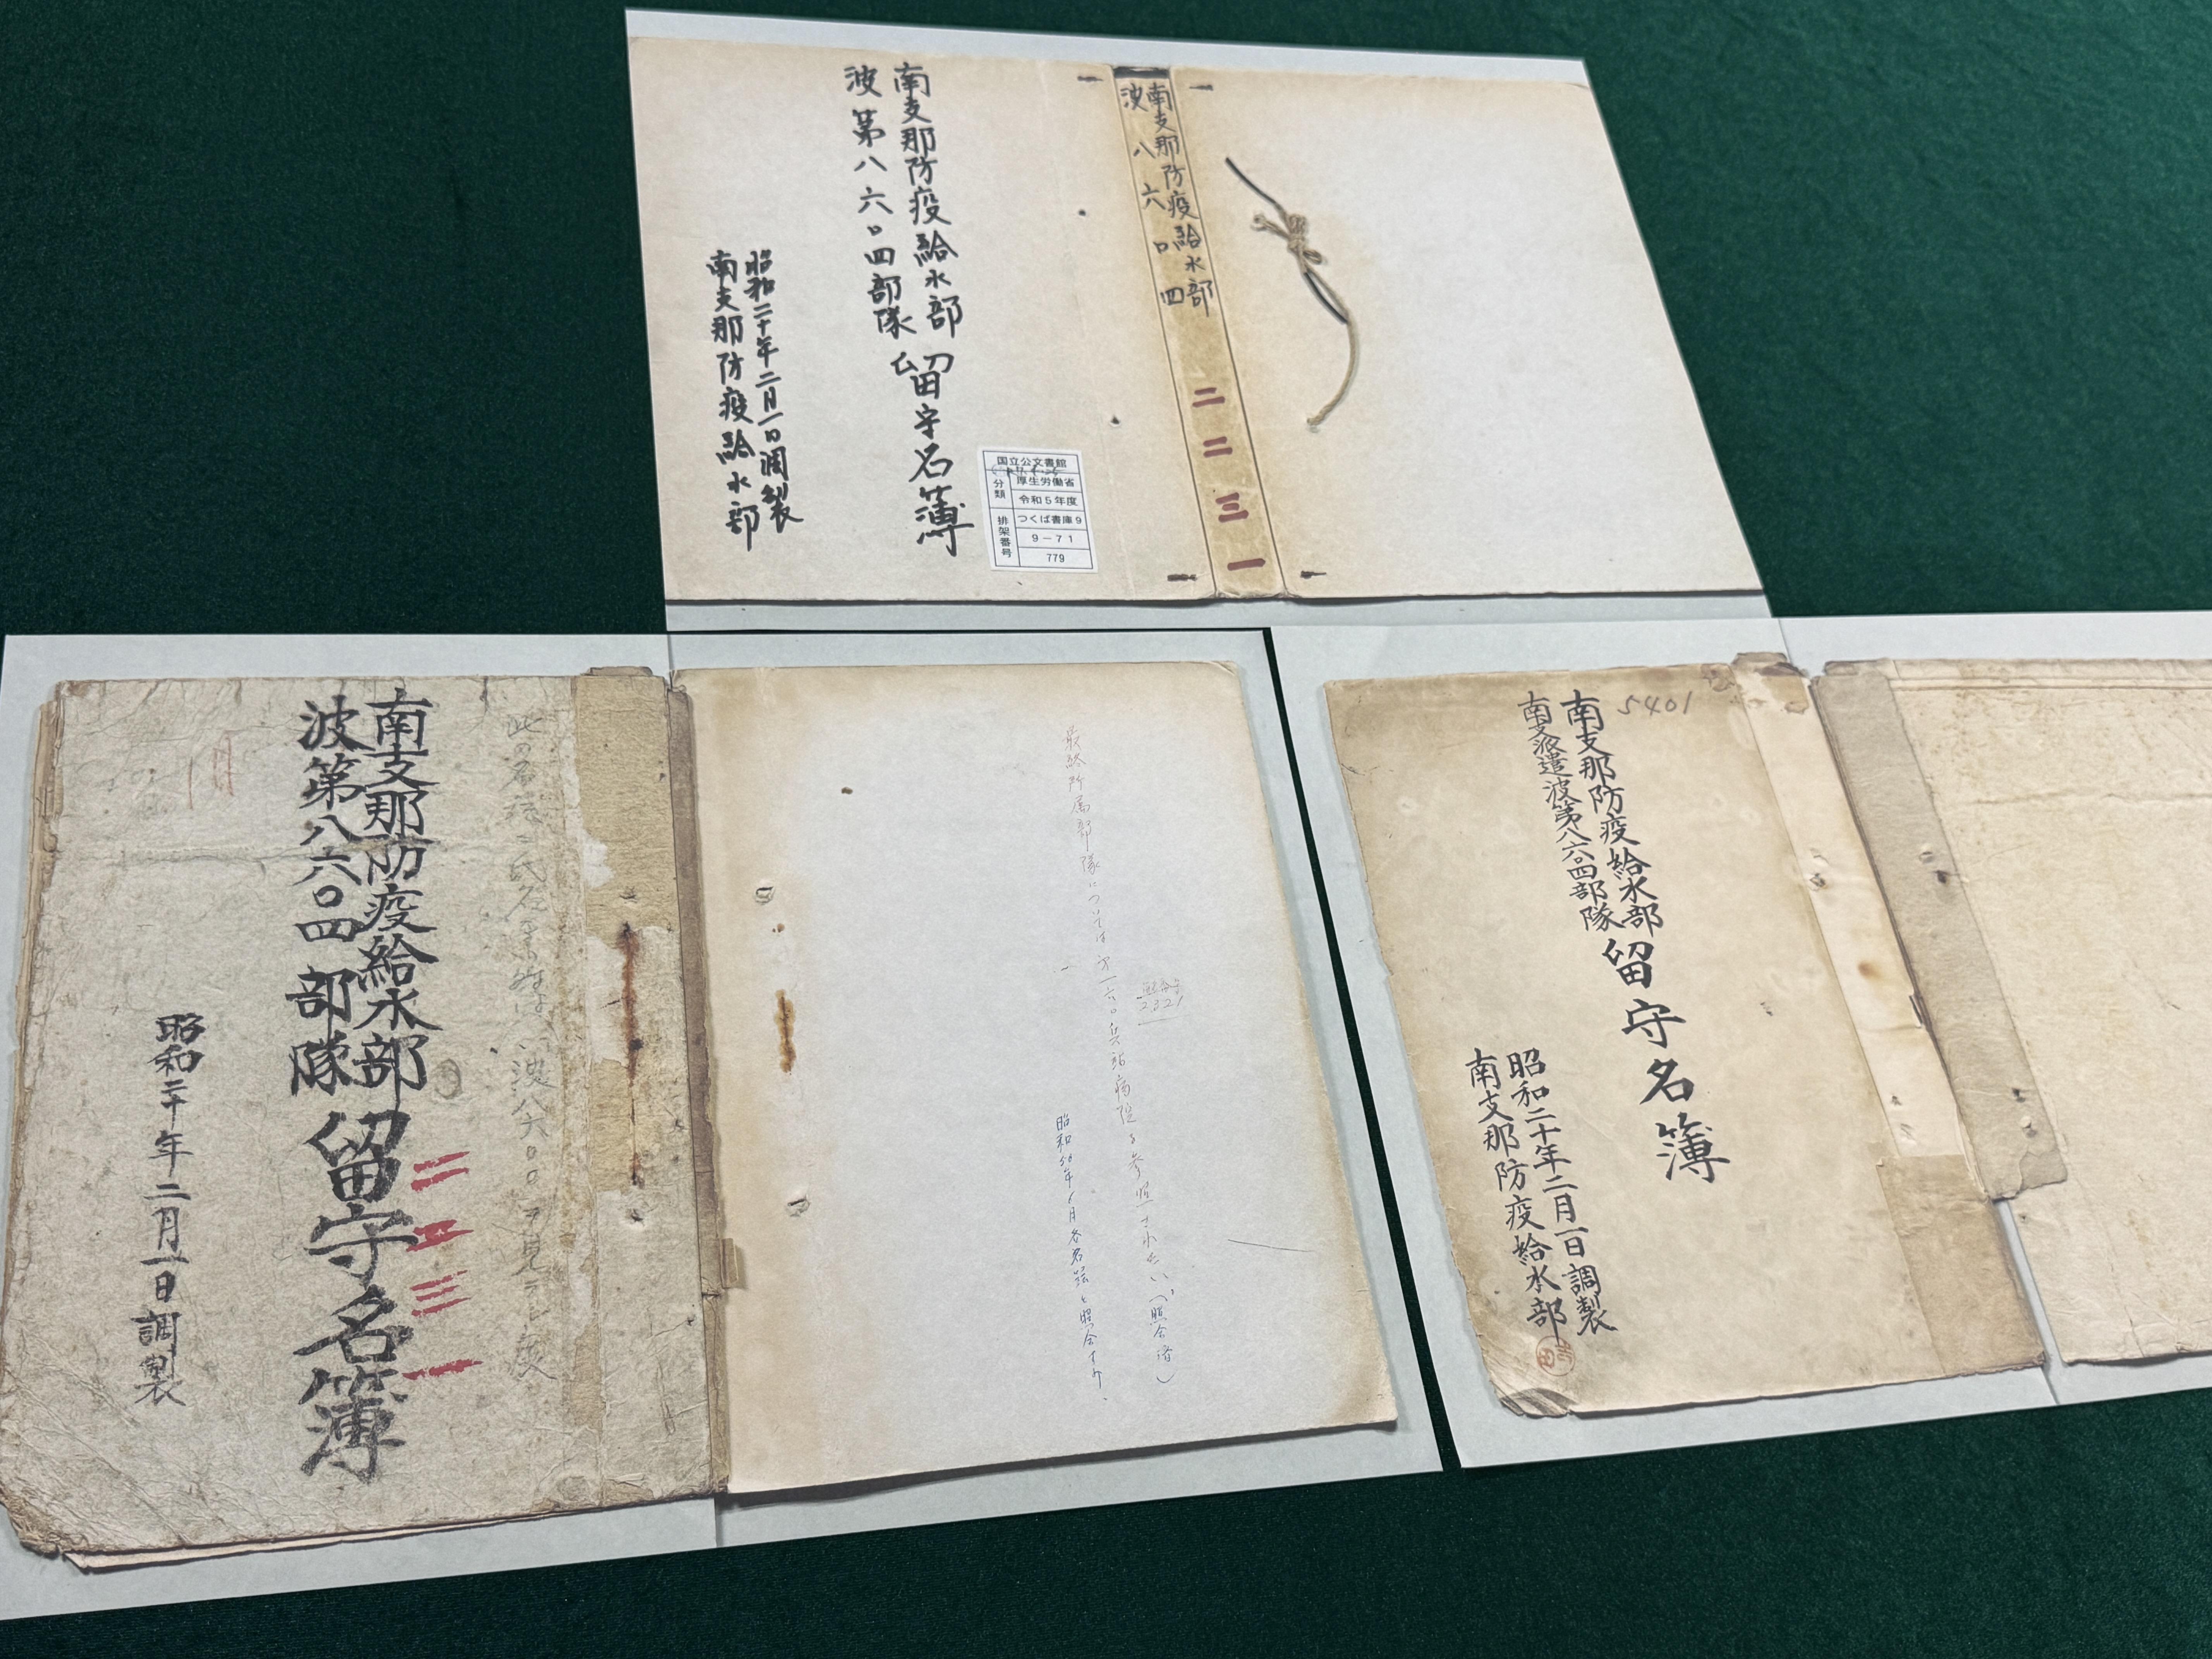 南支那防疫給水部
波第八六〇四部隊
留守名簿
昭和二十年二月一日調製
南支那防疫給水部
国立公文書館
分類
厚生労働省
令和5年度
排架番号
つくば書庫9
9-71
779
南支那防疫給水部
波八六〇四
二二三一
南支那防疫給水部
波第八六〇四部隊
留守名簿
昭和二十年二月一日調製
二二三一
最終所属部隊については
兵站病院を参照されたい。(照合済)
2321
昭和50年6月各名簿と照合すみ.
5401
南支那防疫給水部
南支派遣波第八六〇四部隊
留守名簿
昭和二十年二月一日調製
南支那防疫給水部